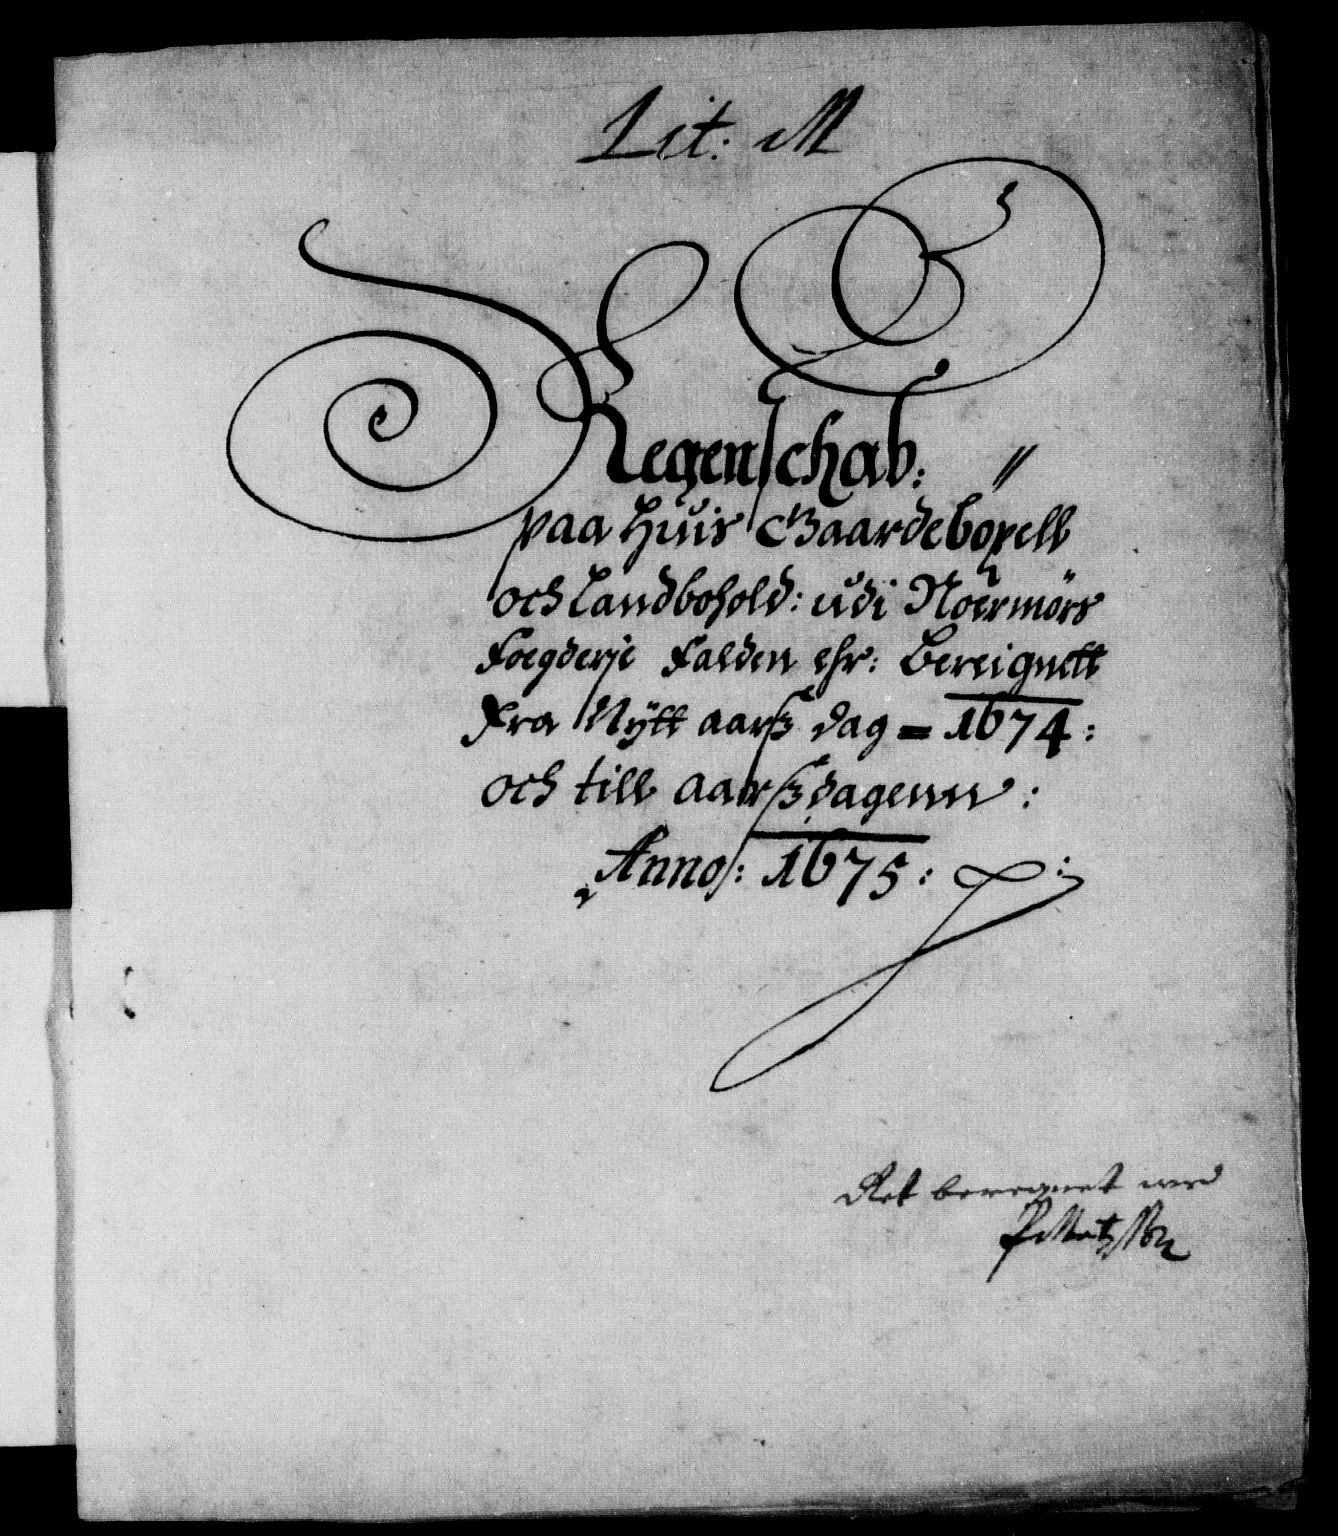 Lit: M
Regenschab:
paa Huis Gaardeboxell
och Landbohold: udi Noermörs
Foegderje Falden ehr: Bereignett
Fra Nÿtt aarß dag = 1674:
och till aarßdagenn:
Anno: 1675:
Ret beregnet